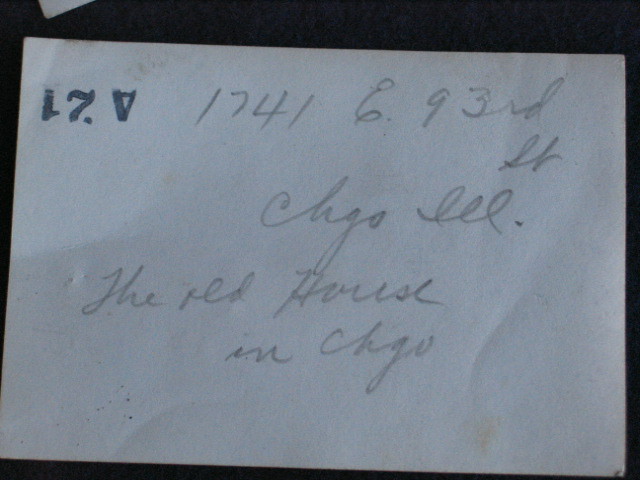 A 21
1741 E. 93rd
St
Chgo Ill.
The old House
in Chgo